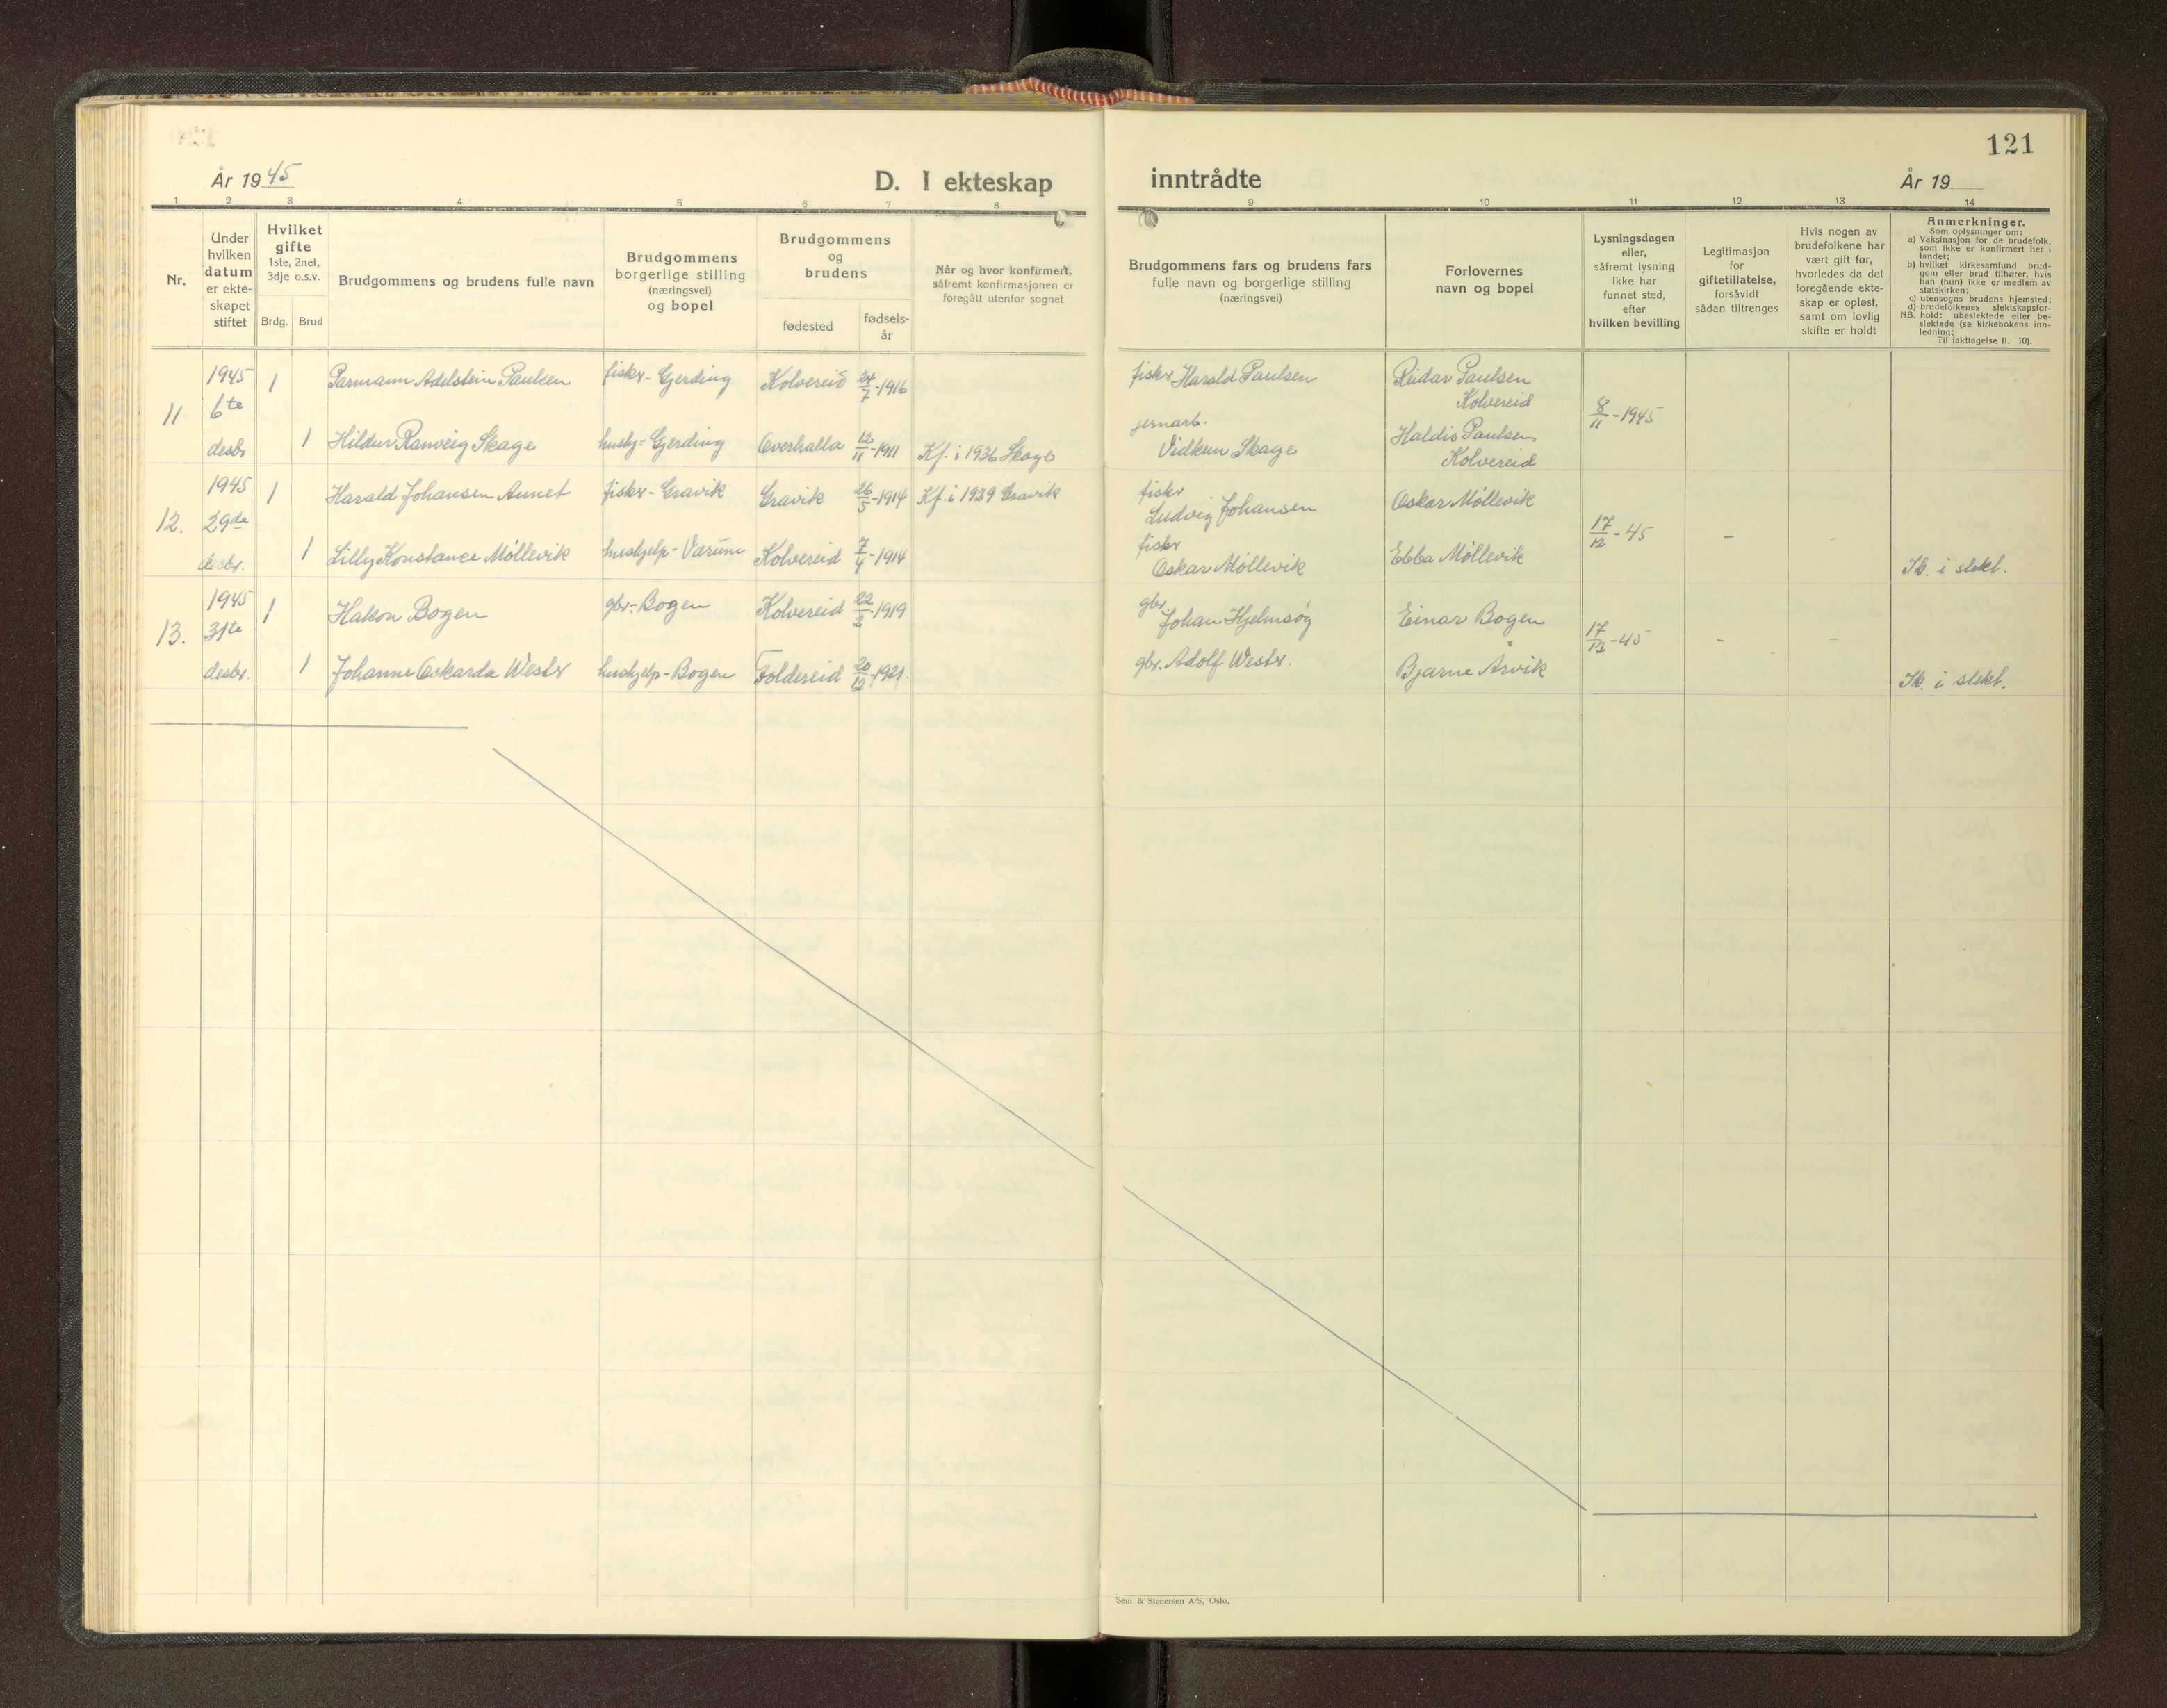 År 1945
D. I ekteskap
inntrådte
121
År 19
1 2 3 4 5 6 7 8
9 10 11 12 13 14
Nr.
Under
hvilken
datum
er ekte-
skapet
stiftet
Hvilket
gifte
1ste, 2net,
3dje o.s.v.
Brdg. Brud
Brudgommens og brudens fulle navn
Brudgommens
borgerlige stilling
(næringsvei)
og bopel
Brudgommens
og
brudens
fødested
fødsels-
år
Når og hvor konfirmert,
såfremt konfirmasjonen er
foregått utenfor sognet
Brudgommens fars og brudens fars
fulle navn og borgerlige stilling
(næringsvei)
Forlovernes
navn og bopel
Lysningsdagen
eller,
såfremt lysning
ikke har
funnet sted,
efter
hvilken bevilling
Legitimasjon
for
giftetillatelse,
forsåvidt
sådan tiltrenges
Hvis nogen av
brudefolkene har
vært gift før,
hvorledes da det
foregående ekte-
skap er opløst,
samt om lovlig
skifte er holdt
Anmerkninger.
Som oplysninger om:
a) Vaksinasjon for de brudefolk,
som ikke er konfirmert her i
landet;
b) hvilket kirkesamfund brud-
gom eller brud tilhører, hvis
han (hun) ikke er medlem av
statskirken;
c) utensogns brudens hjemsted;
d) brudefolkenes slektskapsfor-
NB. hold: ubeslektede eller be-
slektede (se kirkebokens inn-
ledning;
Til iakttagelse II. 10).
11
1945
6te
desbr
1 Parmann Adelstein Paulsen fisker - Gjerding Kolvereid 24/7-1916
fisker Harald Paulsen
Reidar Paulsen
Kolvereid
8/11-1945
1 Hildur Ranveig Skage hushj - Gjerding Overhalla 12/11-1911 Kf. i 1936 Skage
jernarb.
Vidkun Skage
Haldis Paulsen
Kolvereid
12.
1945
29de
desbr.
1 Harald Johansen Aunet fisker - Gravik Gravik 26/5-1914 Kf. i 1929 Gravik
fisker
Ludvig Johansen
Oskar Møllevik
17/12-45 - -
1 Lilly Konstance Møllevik hushjelp - Værum Kolvereid 7/4-1914
fisker
Oskar Møllevik
Ebba Møllevik
Ik. i slekt.
13.
1945
31te
desbr.
1 Hakon Bogen gbr. - Bogen Kolvereid 22/2-1919
gbr.
Johan Hjelmsøg
Einar Bogen
17/12-45 - -
1 Johanne Oskarda Wester hushjelp - Bogen Foldereid 20/12-1921.
gbr. Adolf Wester.
Bjarne Årvik
Ik. i slekt.
Sem & Stenersen A/S, Oslo.